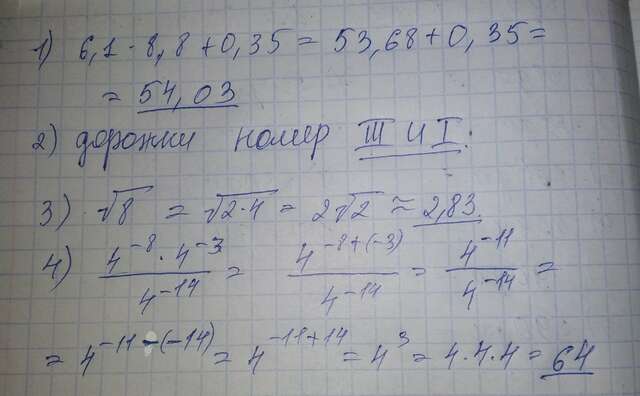 1) 6,1 · 8,8 + 0,35 = 53,68 + 0,35 =
= 54,03
2) дорожки номер III и I.
3) √8 = √2·4 = 2√2 ≈ 2,83.
4) (4^-8 · 4^-3)/(4^-14) = (4^-8+(-3))/(4^-14) = (4^-11)/(4^-14) =
= 4^-11-(-14) = 4^-11+14 = 4^3 = 4·4·4 = 64